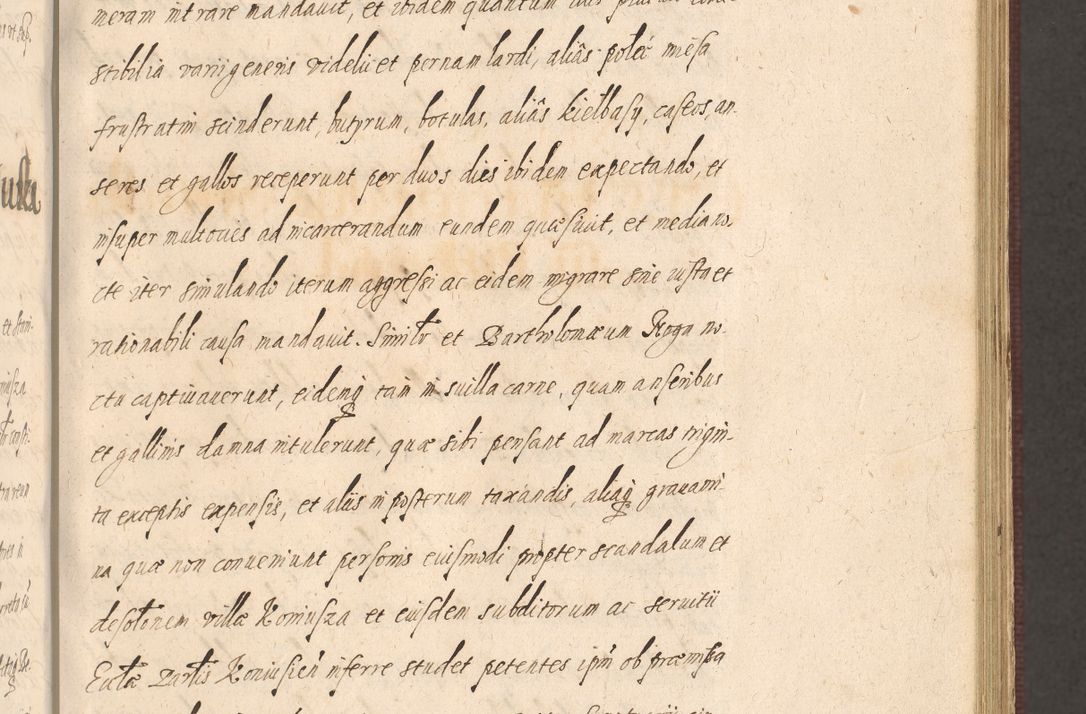 meram intrare mandauit, et ibidem quantum
stibilia varii generis videlicet pernam lardi, aliâs połeć miesa
frustratim scinderunt, butyrum, botulas, aliâs kiełbasy, caseos, an-
seres et gallos receperunt per duos dies ibidem expectando, et
insuper multoties ad incarcerandum eundem quæsiuit, et media no-
cte iter simulando iterum aggressi ac eidem migrare sine iusta et
rationabili causa mandauit. Similr et Bartholomæum Roga no-
ctu captiuauerunt, eidemq tam in suilla carne, quam anseribus
et gallinis damna intulerunt, quæ sibi pensant ad marcas trigin-
ta exceptis expensis, et aliis in posterum taxandis, aliaq grauami-
na quæ non conueniunt personis eiusmodi propter scandalum et
desolonem villæ Koniusza et eiusdem subditorum ac seruitii
Ecclæ Parlis Koniusien inferre studet petentes ipm ob præmissa